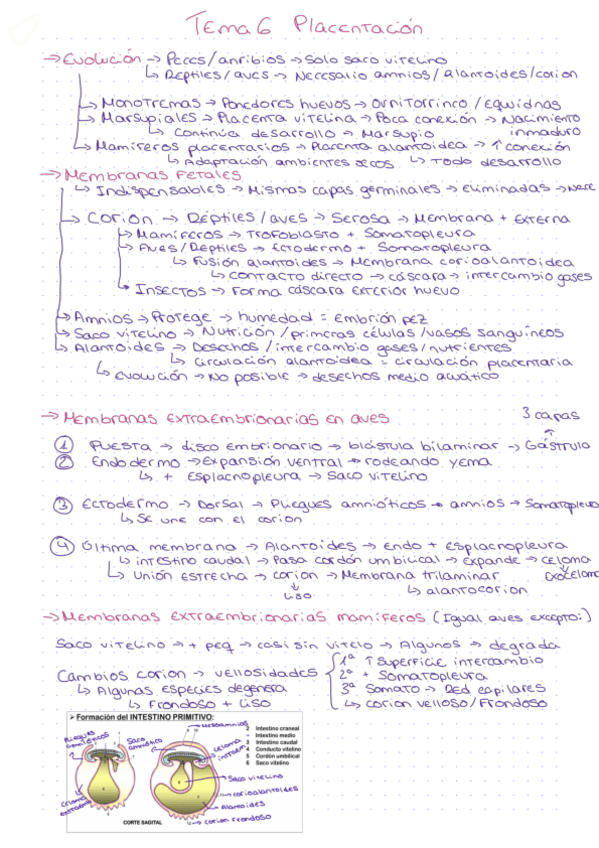 Tema 6 Placentación
→ Evolución → Peces/anfibios → Solo saco vitelino
↳ Reptiles/aves → Necesario amnios/alantoides/corion
↳ Monotremas → Ponedores huevos → Ornitorrinco/Equidnas
↳ Marsupiales → Placenta vitelina → Poca conexión → Nacimiento inmaduro
↳ Continúa desarrollo → Marsupio
↳ Mamíferos placentarios → Placenta alantoidea → ↑ conexión
↳ Adaptación ambientes secos ↳ Todo desarrollo
→ Membranas Fetales
↳ Indispensables → Mismas capas germinales → Eliminadas →
↳ Corion → Réptiles/aves → Serosa → Membrana + externa
↳ Mamíferos → Trofoblasto + Somatopleura
↳ Aves/Réptiles → Ectodermo + Somatopleura
↳ Fusión alantoides → Membrana corioalantoidea
↳ Contacto directo → cáscara → intercambio gases
↳ Insectos → Forma cáscara exterior huevo
↳ Amnios → Protege → humedad = Embrión pez
↳ Saco vitelino → Nutrición/primeras células/vasos sanguíneos
↳ Alantoides → Desechos/intercambio gases/nutrientes
↳ Circulación alantoidea = circulación placentaria
↳ Evolución → No posible → desechos medio acuático
→ Membranas extraembrionarias en aves
3 capas
① Puesta → disco embrionario → blástula bilaminar → Gástrula
② Endodermo → Expansión ventral → rodeando yema
↳ + Esplacnopleura → Saco vitelino
③ Ectodermo → Dorsal → Pliegues amnióticos → amnios → Somatopleu
↳ Se une con el corion
④ Última membrana → Alantoides → Endo + esplacnopleura
↳ intestino caudal → Pasa cordón umbilical → Expande → celoma
↳ Unión estrecha → corion → Membrana trilaminar exoceloma
↳ Liso ↳ alantocorion
→ Membranas extraembrionarias mamíferos (Igual aves excepto:)
Saco vitelino → + peq → casi sin vitelo → Algunos → degrada
Cambios corion → vellosidades
1ª ↑ Superficie intercambio
2ª + Somatopleura
3ª Somato → Red capilares
↳ Algunas especies degenera
↳ Frondoso + Liso
↳ corion velloso/Frondoso
➤ Formación del INTESTINO PRIMITIVO:
Mesoamnios
Pliegues amnióticos
Saco amniótico
Celoma
Celoma extraem
Saco vitelino
corioalantoides
Alantoides
corion frondoso
2 Intestino craneal
Intestino medio
3 Intestino caudal
4 Conducto vitelino
5 Cordón umbilical
6 Saco vitelino
CORTE SAGITAL